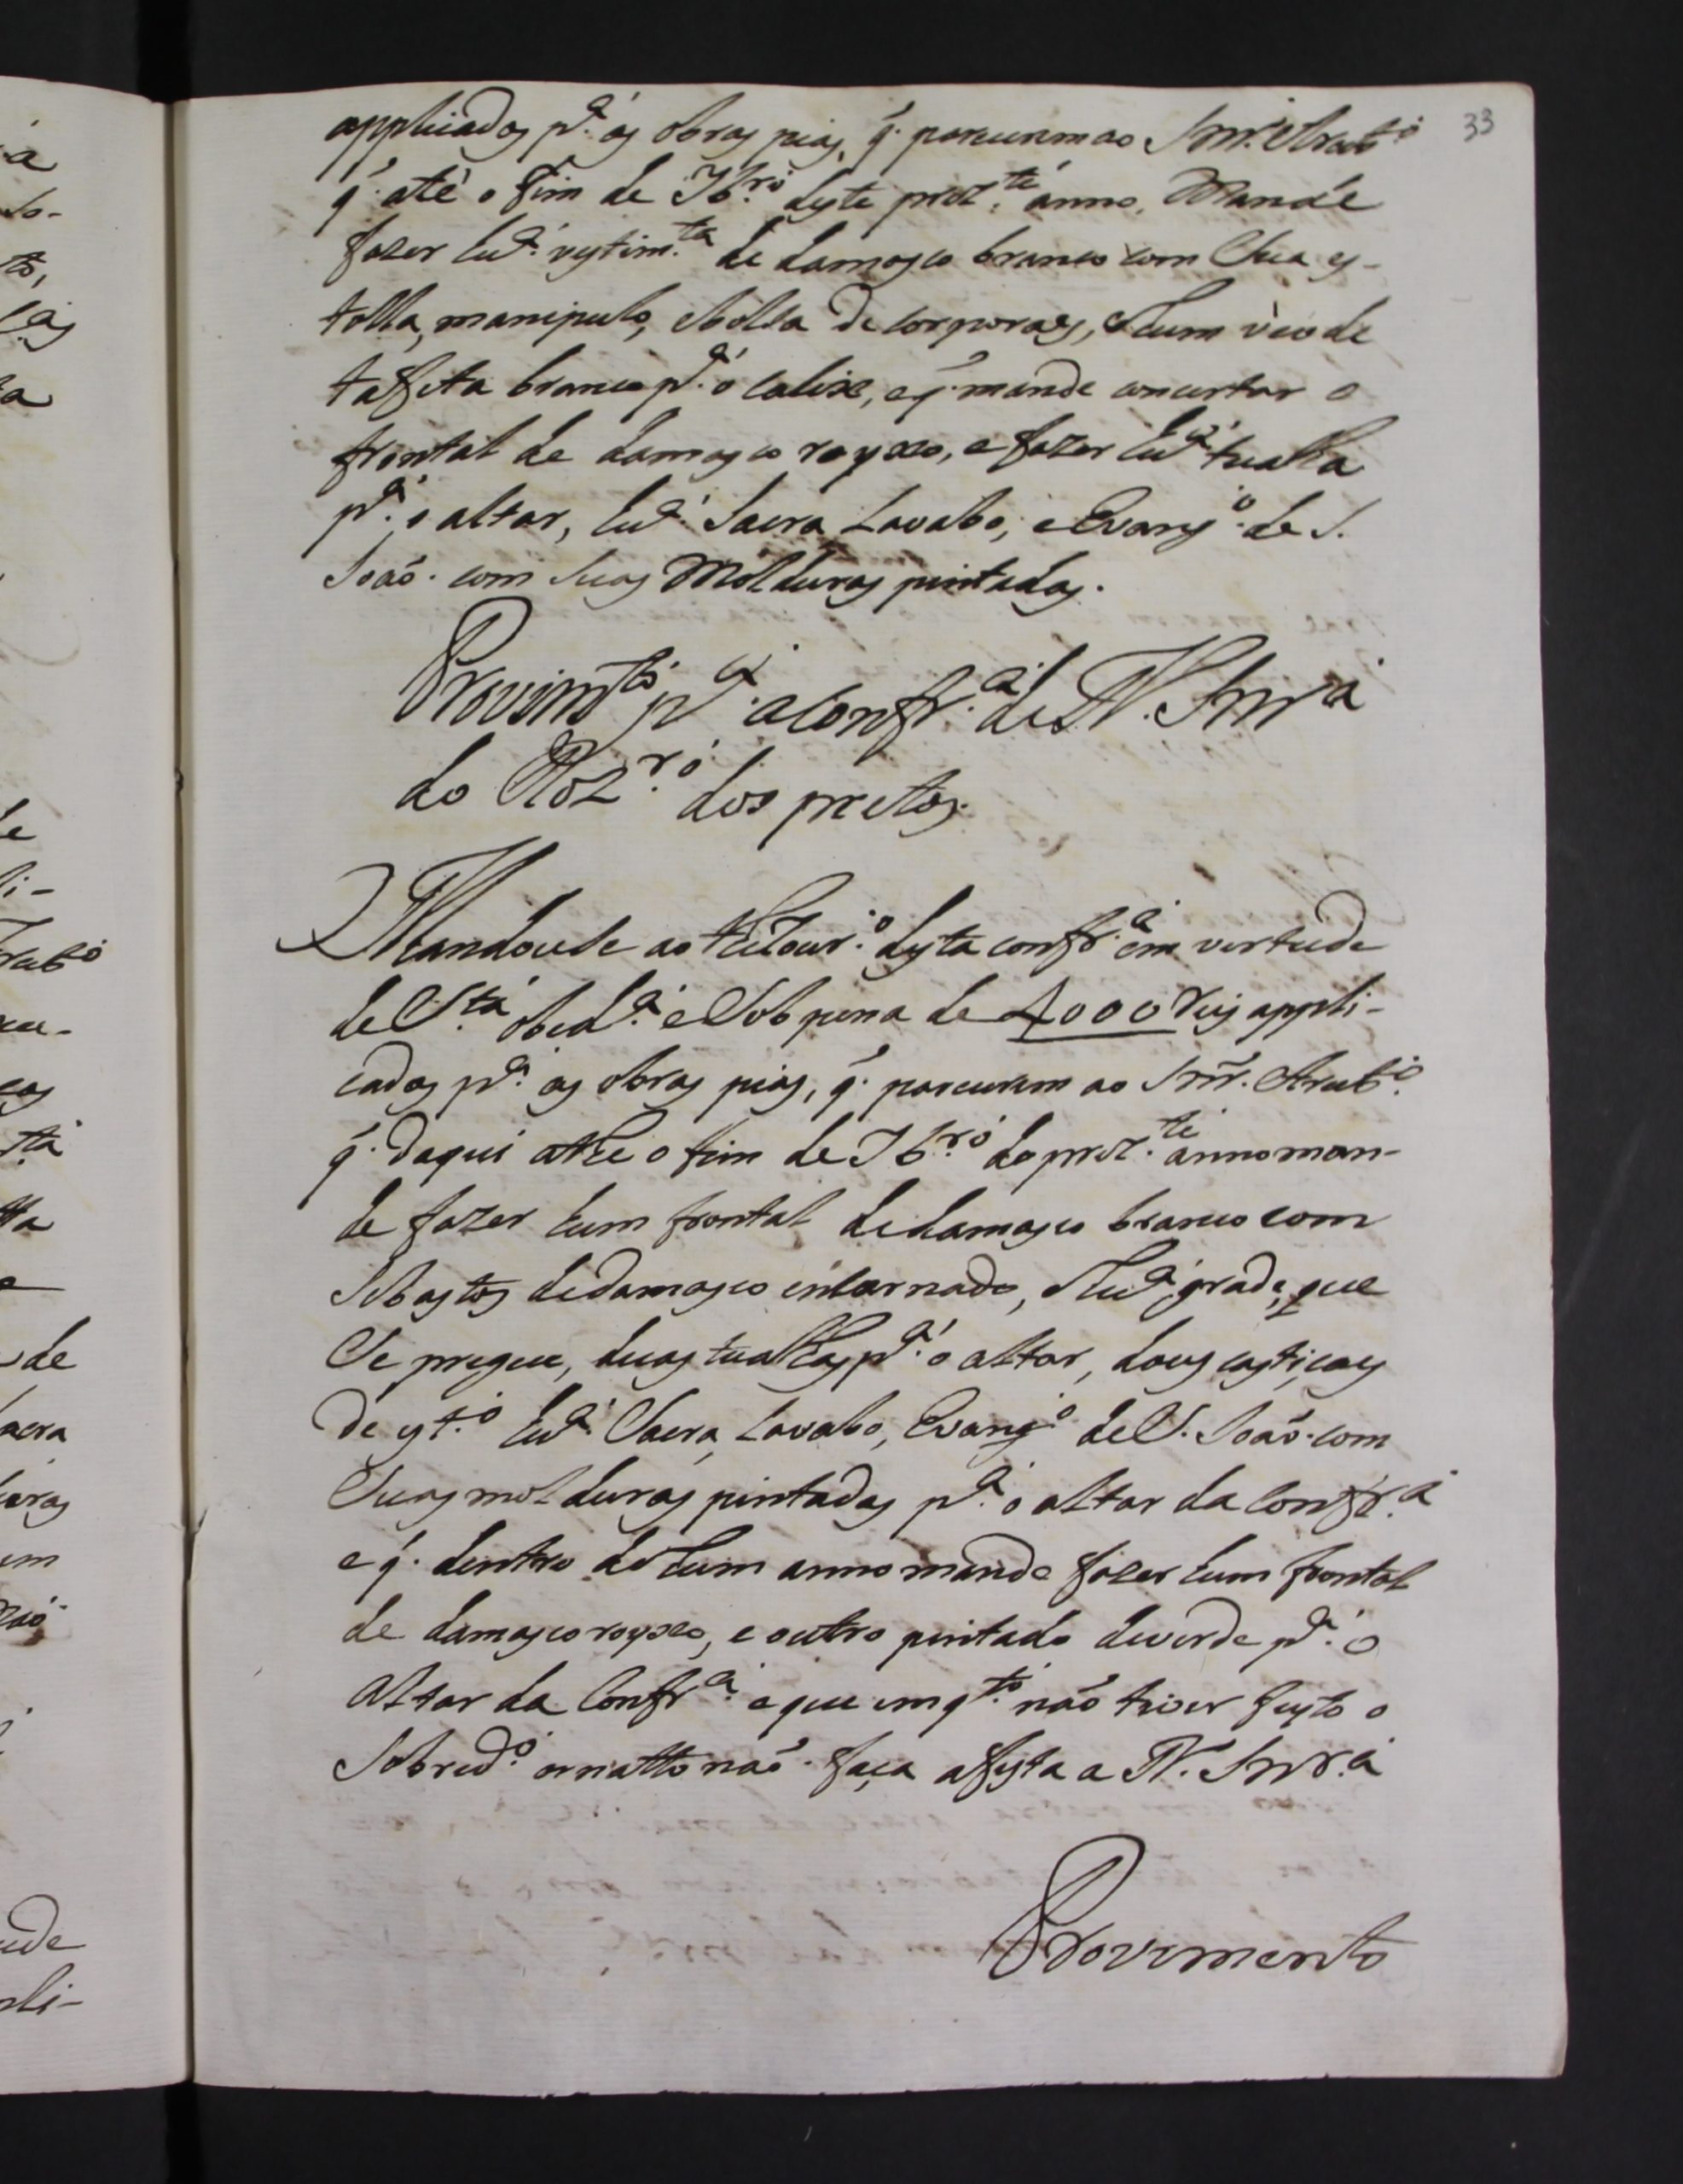 33
applicados p.ª as obras pias, q̃. parecerem ao Snr. Arceb.º
q̃. atè o fim de 7br.º deste prez.te anno, Mande
fazer hũa vestim.ta de damasco branco com Sua es-
tolla, manipulo, e bolsa de corporaes, e hum vèo de
tafeta branco p.ª o calix, e q̃. mande concertar o
frontal de damasco royxo, e fazer hũa tualha
p.ª o altar, hũa Sacra, Lavabo, e Evang.º de S.
João. com Suas Molduras pintadas.
Provim.to p.ª a Confr.ª de N. Snr.ª
do Roz.rº dos pretos.
Mandou se ao Thizour.º desta confr.ª em vertude
de S.ta obed.ª e Sob pena de 4000 reis appli-
cados p.ª as obras pias, q̃. parecerem ao Snr̃. Arceb.º
q̃. daqui athe o fim de 7br.º do prez.te anno man-
de fazer hum frontal de damasco branco com
Sebastos de damasco encarnado, e hũa grade, que
Se pregue, duas tualhas p.ª o altar, dous castiçaes
de est.º hũa Sacra, Lavabo, Evang.º de S. João. com
Suas molduras pintadas p.ª o altar da Confr.ª
e q̃. dentro de hum anno mande fazer hum frontal
de damasco royxo, e outro pintado de verde p.ª o
Altar da Confr.ª e que emq.to não tiver feyto o
Sobred.º ornatto não. faça a festa a N. Snr.ª
Provimento